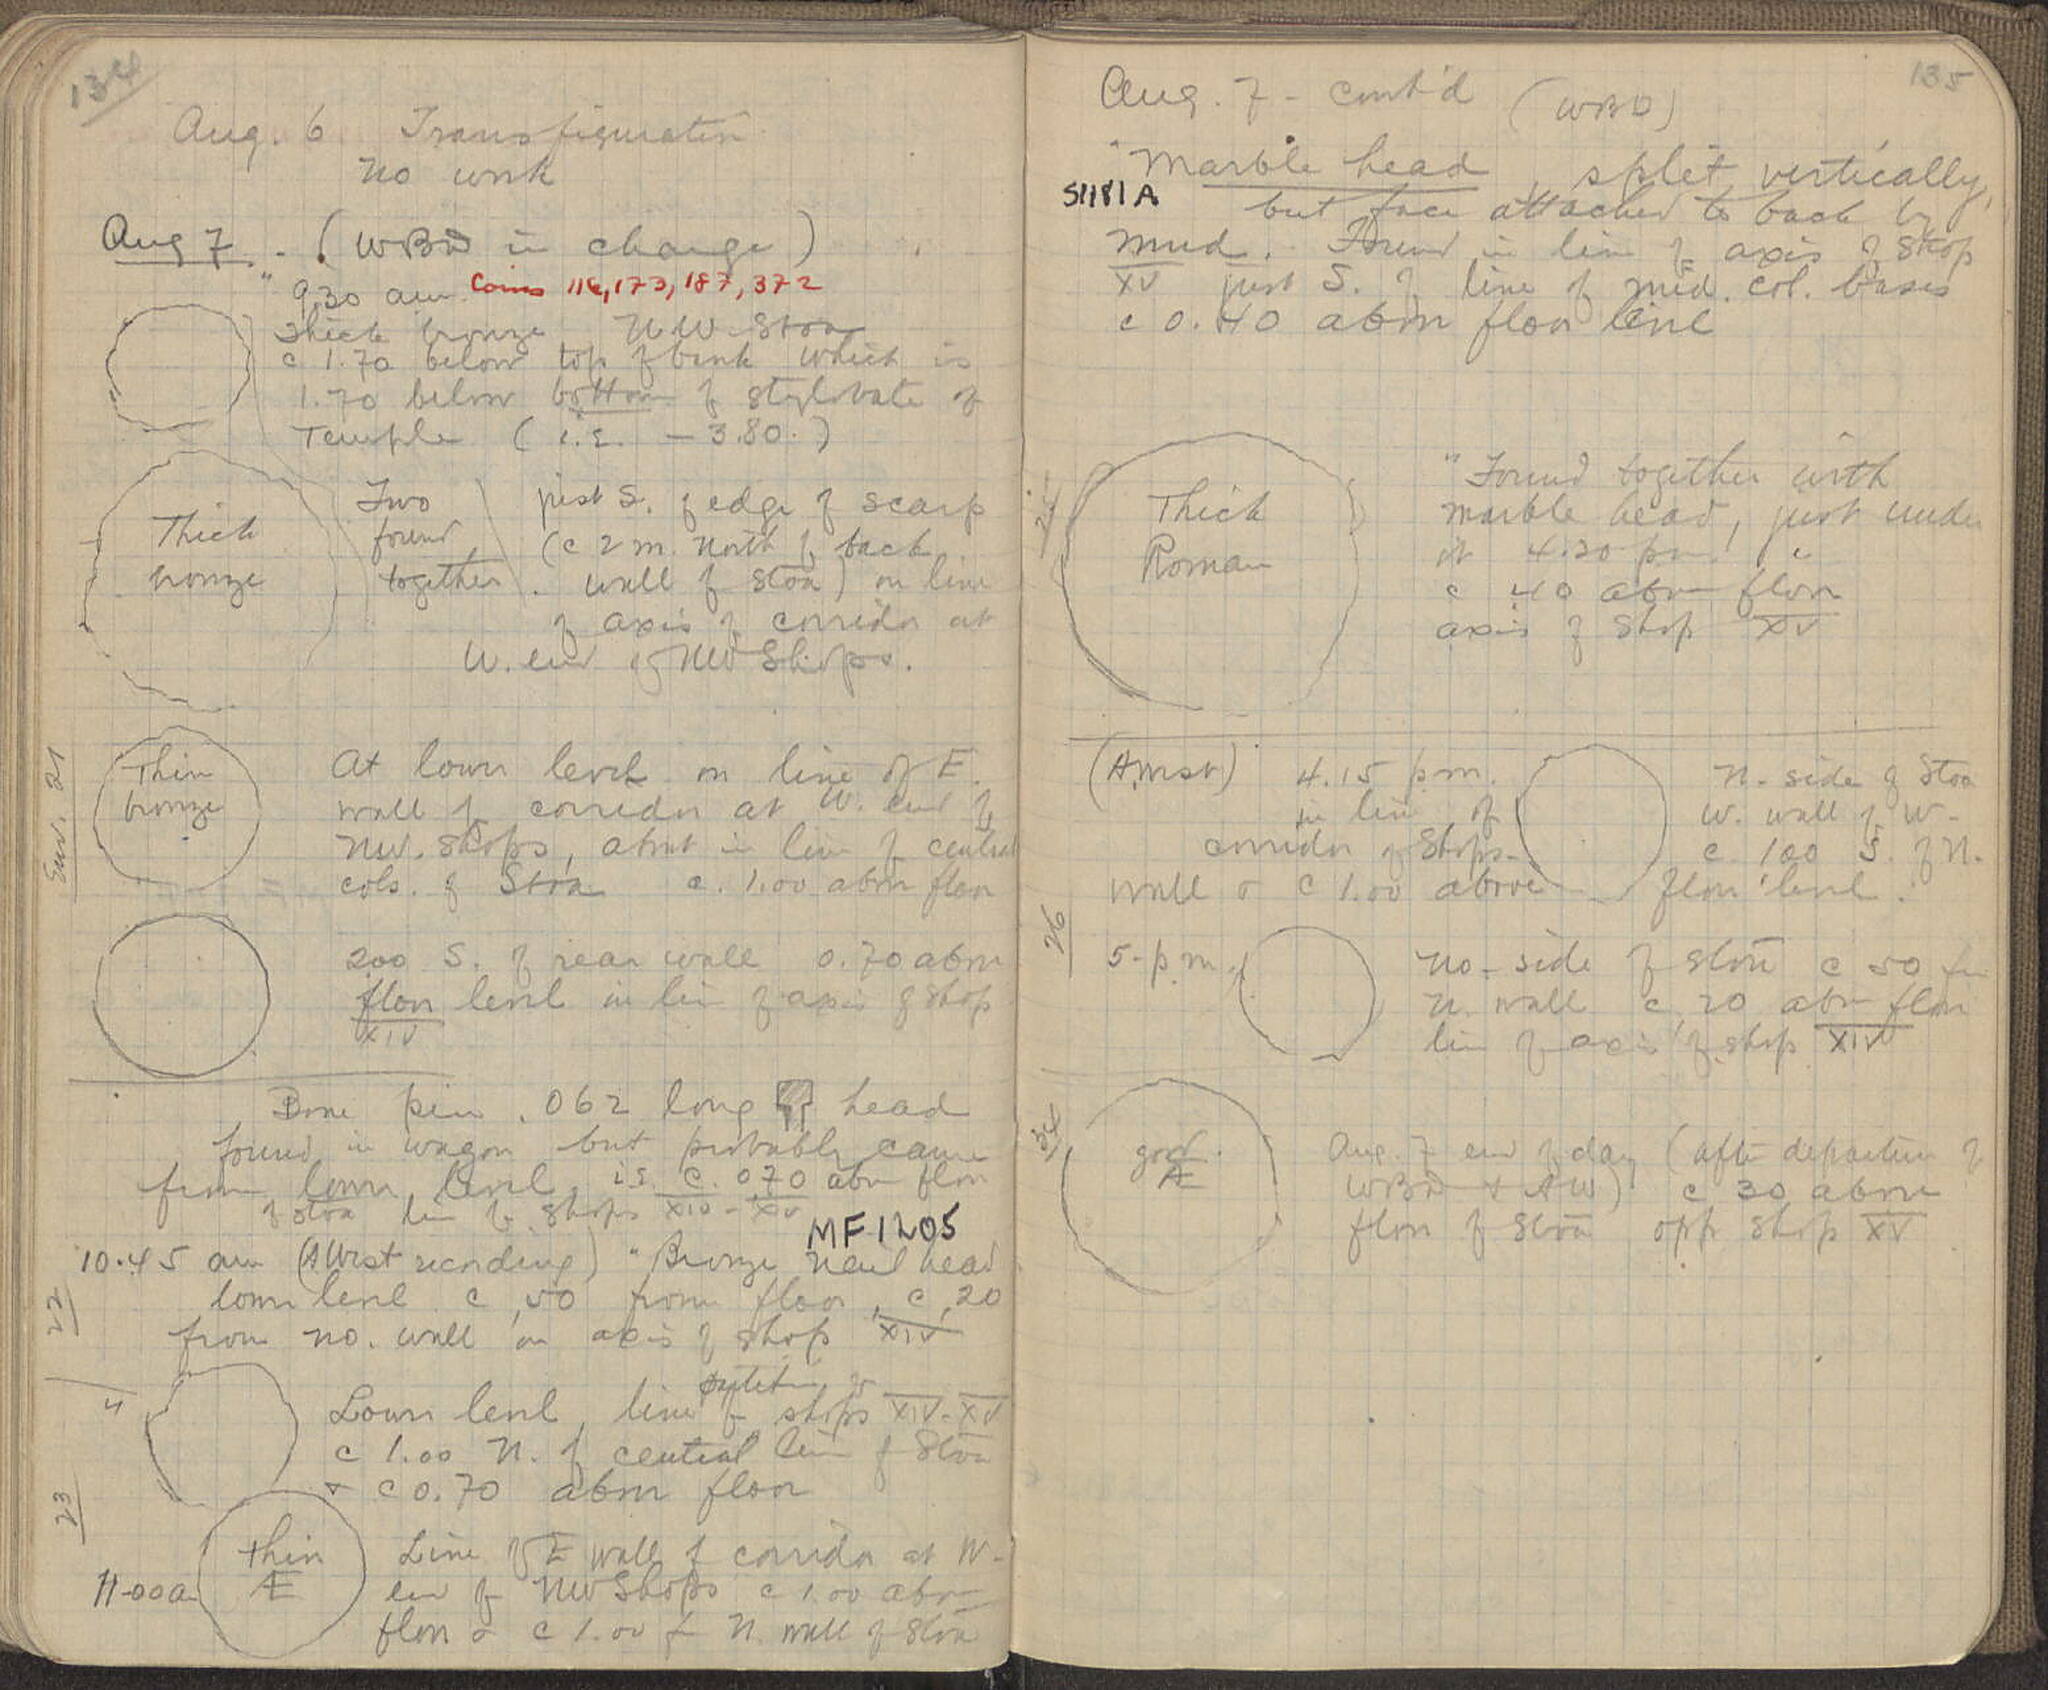 134
Aug. 6 Transfiguration
No work
Aug 7. - (WBD in charge)
" 9.30 am. Coins 116, 173, 187, 372
Thick bronze N.W. Stoa
c 1.70 below top of bank which is
1.70 below bottom of stylobate of
Temple (i.e. - 3.80.)
Thick
bronze
Two
found
together
just S. of edge of scarp
(c 2 m. North of back
wall of Stoa) on line
of axis of corridor at
W. end of NW Shops.
Env. 21
Thin
bronze
At lower level on line of E.
wall of corridor at W. end of
NW. Shops, about in line of central
cols. of Stoa c. 1.00 above floor
200 S. of rear wall 0.70 above
floor level in line of axis of shop
XIV
Bone pin .062 long head
found in wagon but probably came
from lower level, i.e. c. 0.70 abv floor
of stoa line of shops XIV - XV
MF 1205
10.45 am (AWest recording) "Bronze nail head
22
lower level c .50 from floor, c .20
from no. wall on axis of shop XIV
"
Lower level, line of shops XIV-XV
c 1.00 N. of central line of Stoa
+ c 0.70 above floor
23
11-00 a
Thin
Æ
Line of E wall of corridor at W-
end of NW Shops c 1.00 above
floor & c 1.00 f N. wall of Stoa
135
Aug. 7 - cont'd (WBD)
"Marble head, split vertically,
S1181A
but face attached to back by
mud. Found in line of axis of Shop
XV just S. of line of mid. col. bases
c 0.40 above floor level
Thick
Roman
"Found together with
marble head, just under
it 4.20 pm.
c 40 above floor
axis of Shop XV
(A.West) 4.15 p.m.
in line of
corridor of Shops-
N. side of Stoa
W. wall of W-
c 100 S. of N.
wall & c 1.00 above floor level.
26
5-p.m.
No-side of Stoa c 50 fr
N. wall c 20 abv floor
line of axis of shop XIV
good
Æ
Aug. 7 end of day (after departure of
WBD + AW) c 30 above
floor of Stoa opp shop XV